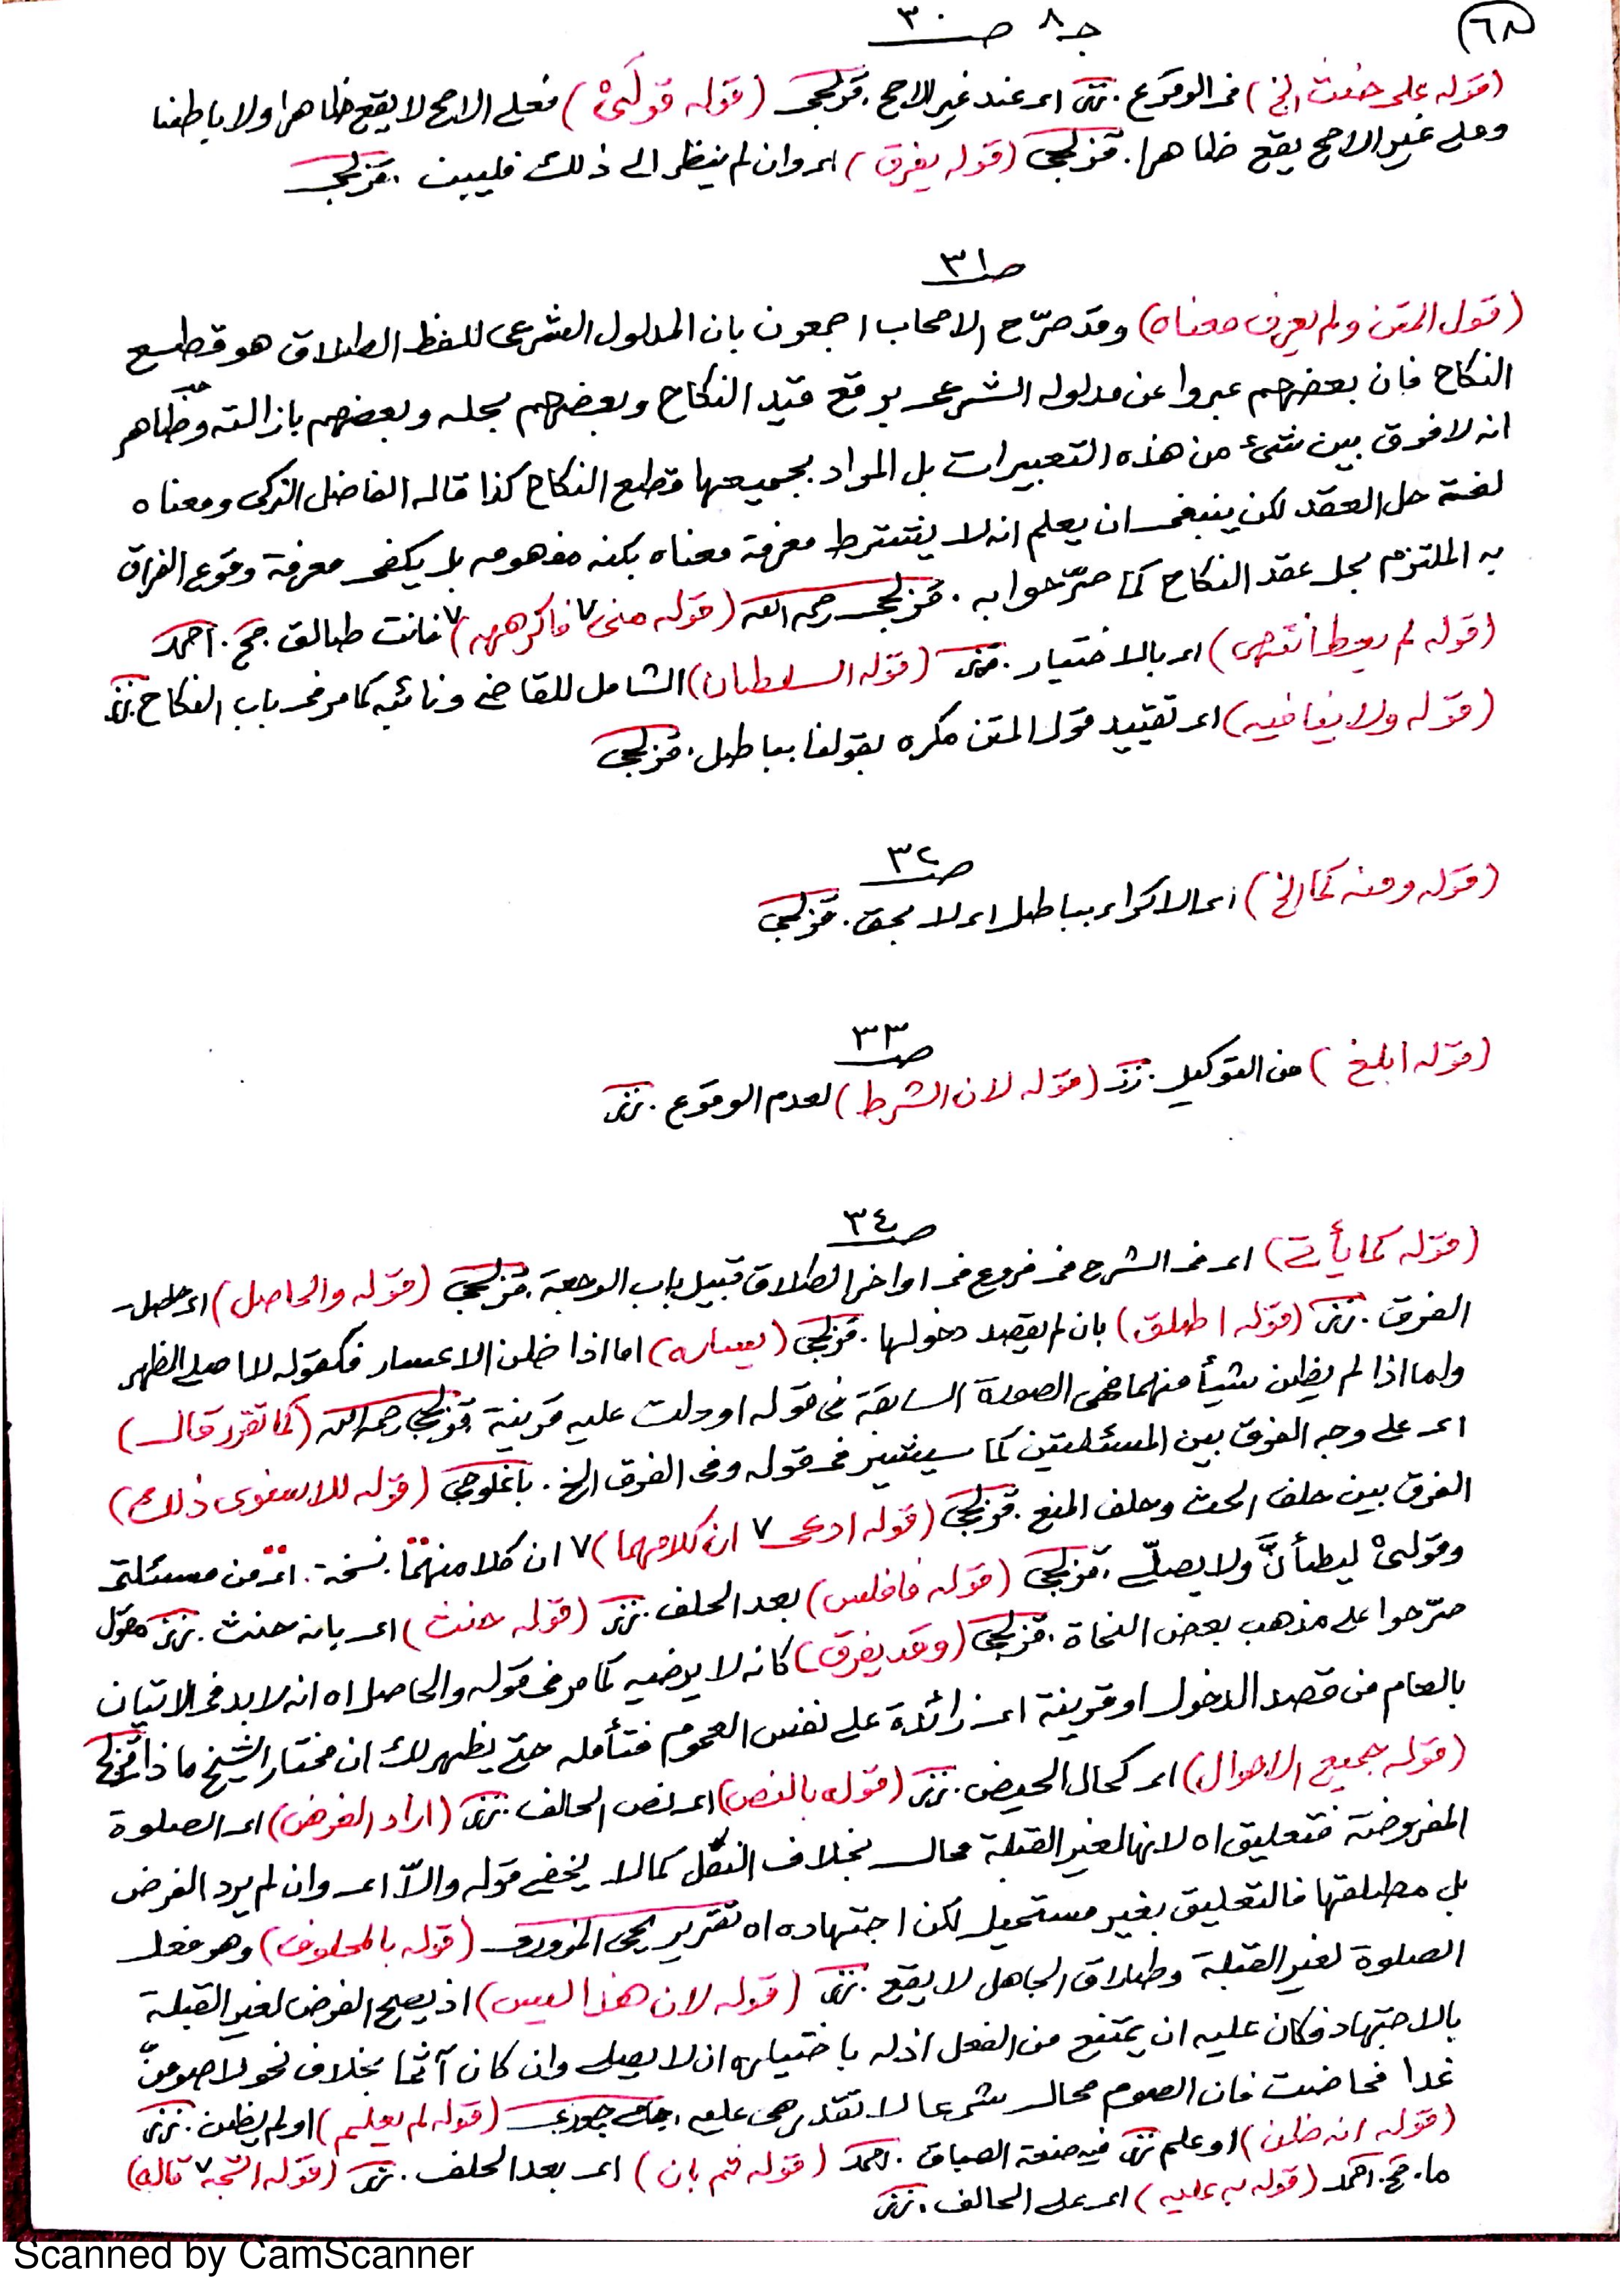 ٦٨
جـ ٨ صـ ٣٠
(قوله على حنث الخ) في الوقوع. نزز اى عند غير الاصح. قزلجى (قوله قولىْ) فعلى الاصح لا يقع ظاهرا ولا باطنا
وعلى غير الاصح يقع ظاهرا. قزلجى (قوله يفرق) اى وان لم ينظر الى ذلك فليبن. قزلجى
صـ ٣١
(قول المتن ولم يعرف معناه) وقد صرّح الاصحاب اجمعون بان المدلول الشرعى للفظ الطلاق هو قطع
النكاح فان بعضهم عبروا عن مدلوله الشرعى برفع قيد النكاح وبعضهم بحله وبعضهم بازالته وظاهر
انه لا فرق بين شئ من هذه التعبيرات بل المراد بجميعها قطع النكاح كذا قاله الفاضل التركى ومعناه
لغة حل العقد لكن ينبغى ان يعلم انه لا يشترط معرفة معناه بكنه مفهومه بل يكفى معرفة وقوع الفراق
به الملتزم بحل عقد النكاح كما صرّحوا به. قزلجى رحمه الله (قوله منى ٧ فاكرهه) ٧ فانت طالق حج. احمد
(قوله لم يعط انتهى) اى بالاختيار. نزز (قوله السلطان) الشامل للقاضى ونائبه كما مر فى باب النكاح. نزز
(قوله ولا ينافيه) اى تقييد قول المتن مكره بقولنا بباطل. قزلجى
صـ ٣٢
(قوله ومنه كما الخ) اى الاكراه بباطل اى لا بحق. قزلجى
صـ ٣٣
(قوله ابلغ) من التوكيل. نزز (قوله لان الشرط) لعدم الوقوع. نزز
صـ ٣٤
(قوله كما يأتى) اى فى الشرح فى فروع فى اواخر الطلاق قبيل باب الرجعة. قزلجى (قوله والحاصل) اى حاصل
الفرق. نزز (قوله اطلق) بان لم يقصد دخولها. قزلجى (يساره) اما اذا ظن الاعسار فكقوله لا اصلى الظهر
ولما اذا لم يظن شيأ منهما فهى الصورة السابقة فى قوله او دلت عليه قرينة قزلجى رحمه الله (كما تقرر قال)
اى على وجه الفرق بين المسئلتين كما سيشير فى قوله وفى الفرق الخ. باغلوجى (قوله للاسنوى ذلك)
الفرق بين حلف الحث وحلف المنع. قزلجى (قوله ادعى ٧ ان كلامهما) ٧ ان كلا منهما. نسخة. اى من مسئلتى
وقولىْ ليطأنّ ولا يصلّى. قزلجى (قوله فافلس) بعد الحلف. نزز (قوله حنث) اى بانه حنث. نزز قول
صرّحوا على مذهب بعض النحاة. قزلجى (وقد يفرق) كانه لا يرضيه كما مر فى قوله والحاصل اه انه لا بد فى الاتيان
بالعام من قصد الدخول او قرينة اى زائدة على نفس العموم فتأمله حتى يظهر لك ان مختار الشيخ ماذا قزلجى
(قوله جميع الاحوال) اى كحال الحيض. نزز (قوله بالنص) اى نص الحالف. نزز (اراد الفرض) اى الصلوة
المفروضة فتعليق اه لانها لغير القبلة محال بخلاف النفل كما لا يخفى قوله والاّ اى وان لم يرد الفرض
بل مطلقها فالتعليق بغير مستحيل لكن اجتهاده اه تقرير يحى المزورى (قوله بالمحلوف) وهو فعل
الصلوة لغير القبلة وطلاق الجاهل لا يقع. نزز (قوله لان هذا ليس) اذ يصح الفرض لغير القبلة
بالاجتهاد فكان عليه ان يمتنع من الفعل اذ له باختياره ان لا يصلى وان كان آثما بخلاف نحو لاصومنّ
غدا فحاضت فان الصوم محال شرعا لا تقدر هى عليه. جورى (قوله لم يعلم) او لم يظن. نزز
(قوله انه ظن) او علم نزز فيه صنعة السباق. احمد (قوله ثم بان) اى بعد الحلف. نزز (قوله اتجه ٧ قاله)
ما. حج. احمد (قوله به عليه) اى على الحالف. نزز
Scanned by CamScanner